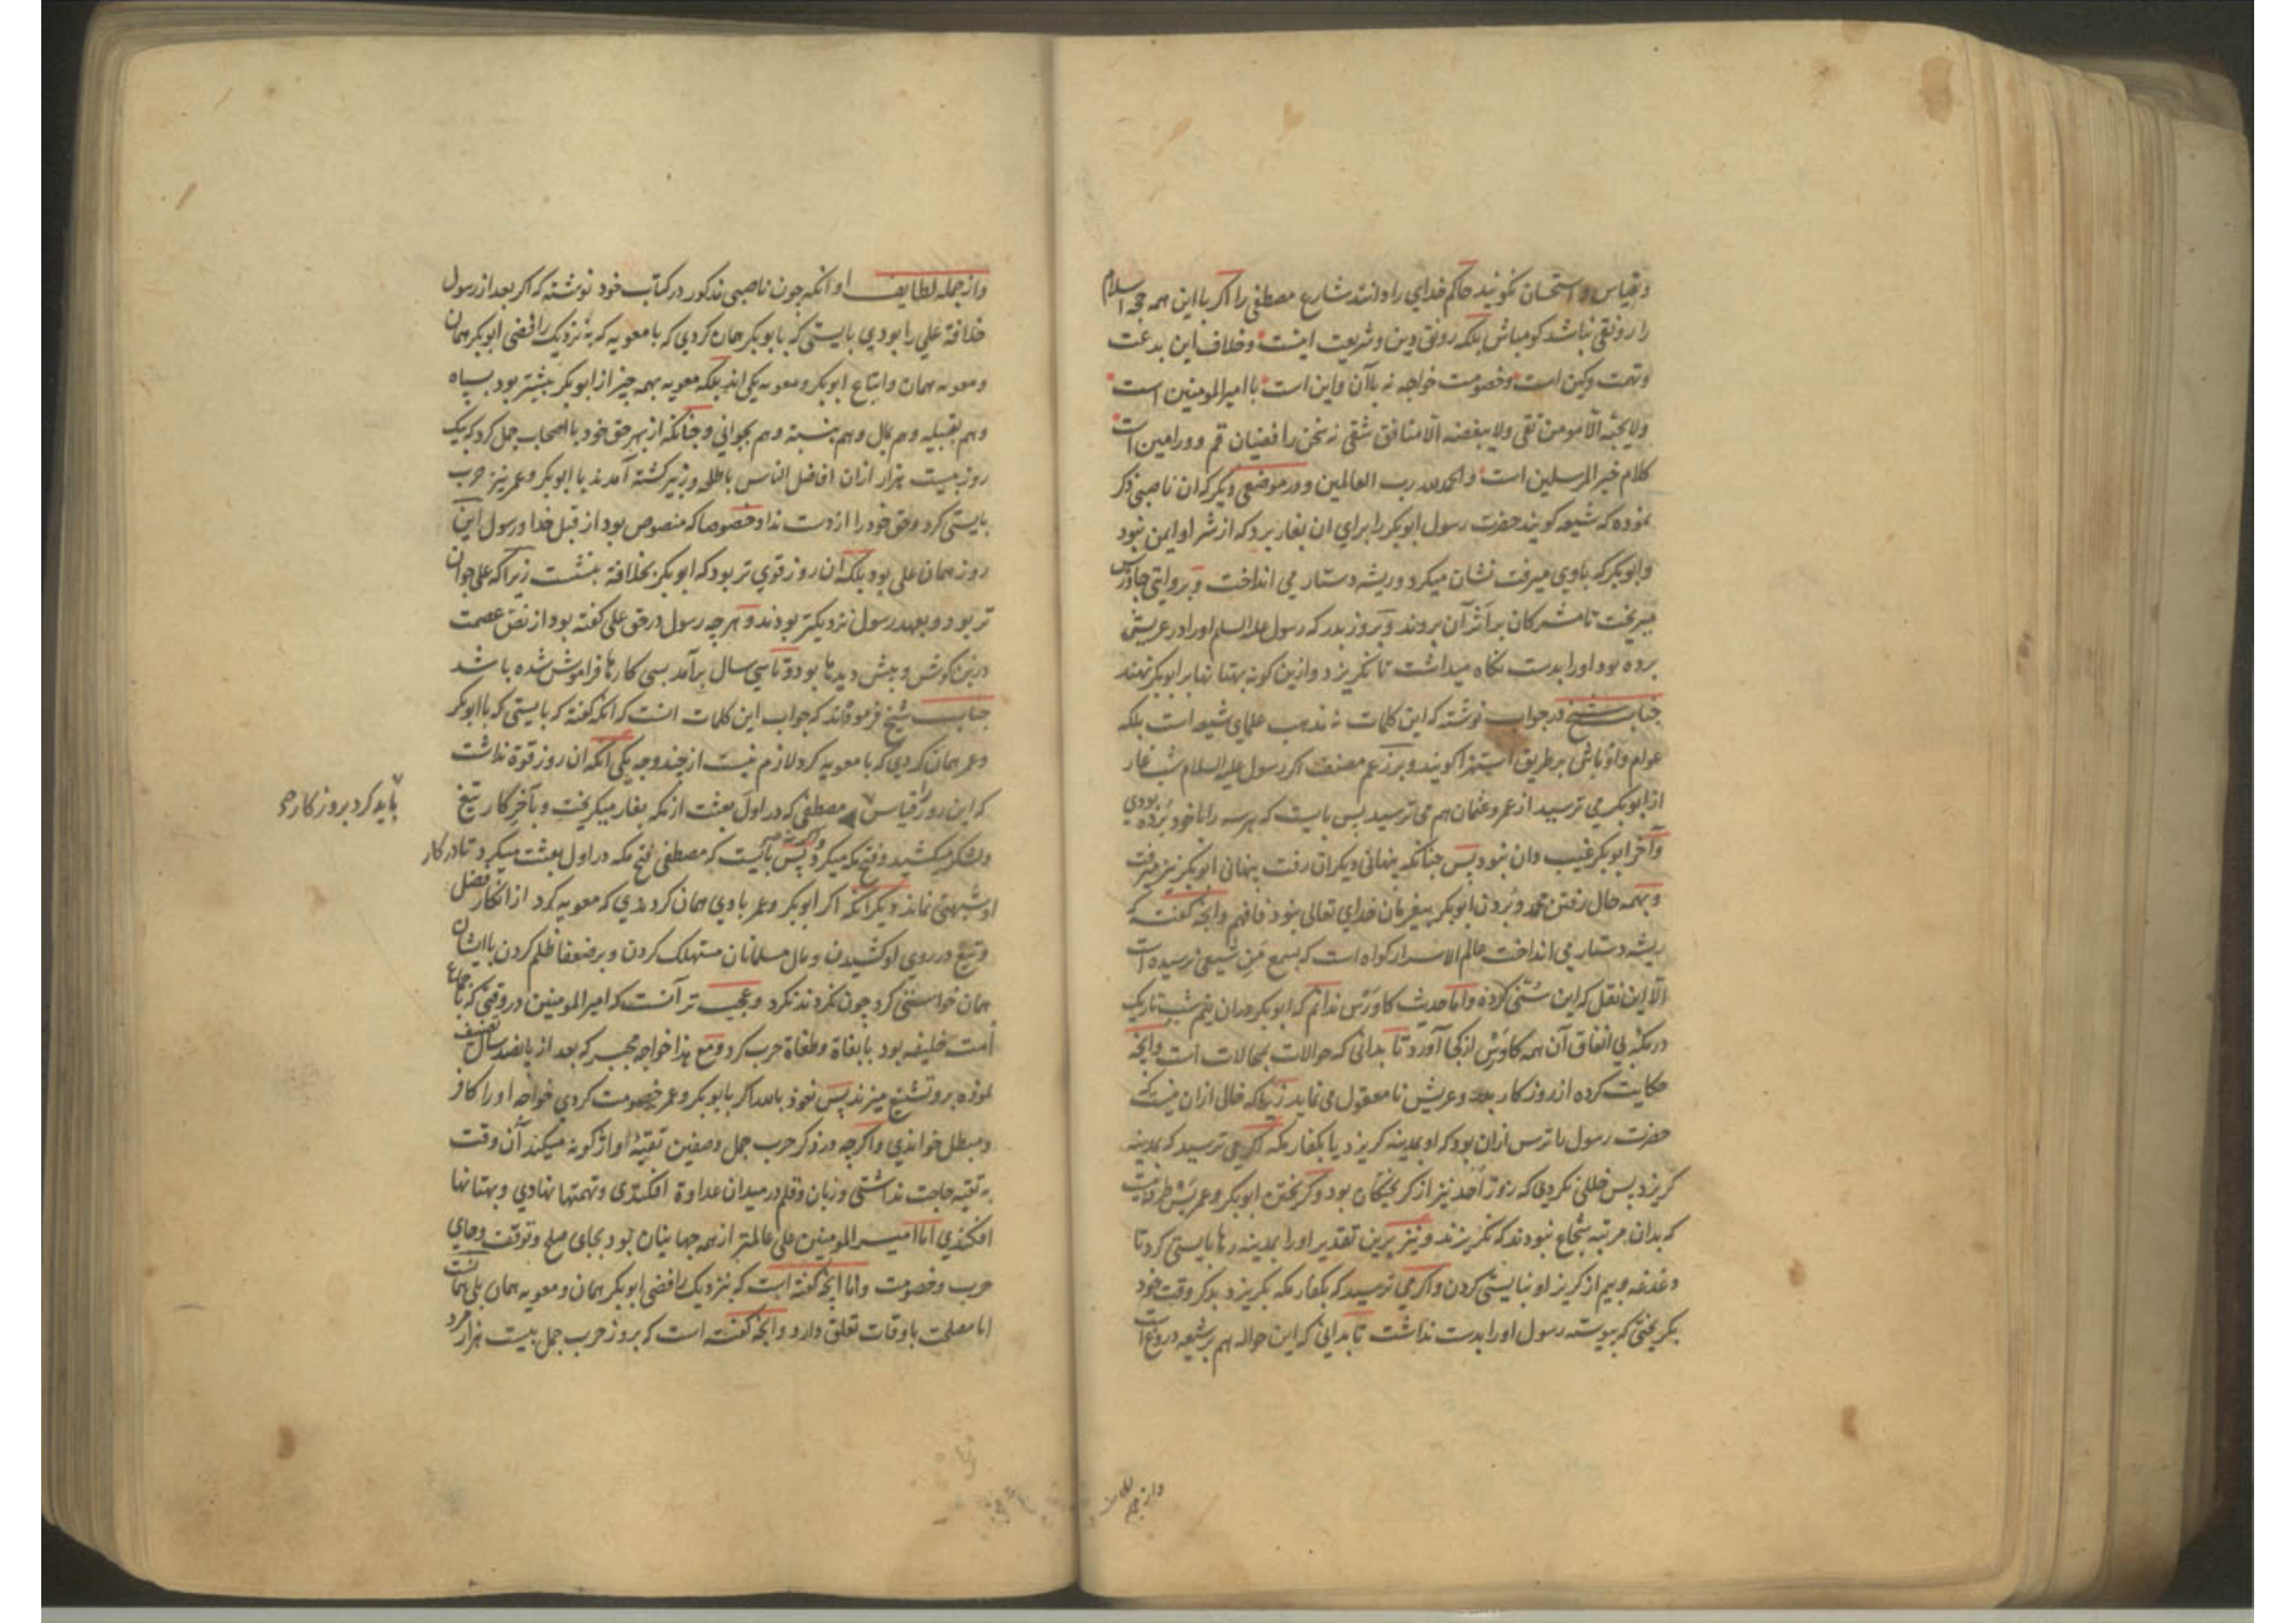 و قیاس و استحسان نگویند حاکم خدای را دانند شارع مصطفی را اکر با این همه حجه اسلام
را رونقی نباشد کو مباش بلکه رونق دین و شریعت اینست و خلاف این بدعت
و تهمت و کین است و خصومت خواجه نه باآن و این است با امیرالمومنین است
ولا یحبّه الّا مومن تقی ولا یبغضه الّا منافق شقی نه سخن رافضیان قم و ورامین است
کلام خیر المرسلین است والحمدلله رب العالمین و در موضعی دیکر که ان ناصبی ذکر
نموده که شیعه کویند حضرت رسول ابوبکر را برای ان بغار برد که از شر او ایمن نبود
و ابوبکر که با وی میرفت نشان میکرد و ریشه دستار می انداخت و بروایتی جاورس
میریخت تا مشرکان بر اثر آن بروند و بروز بدر که رسول علیه السلم او را در عریش
برده بود او را بدست نکاه میداشت تا نکریزد و ازین کونه بهتانها بر ابوبکر نهند
جناب شیخ در جواب نوشته که این کلمات نه مذهب علمای شیعه است بلکه
عوام و اوباش بر طریق استهزا کویند و بر زعم مصنف اکر رسول علیه السلام شب غار
از ابوبکر می ترسید از عمر و عثمان هم می ترسید بس بایست که هر سه را با خود برده بودی
و آخر ابوبکر غیب دان نبود بس جنانکه پنهانی دیکران رفت پنهانی ابوبکر نیز میرفت
و بهمه حال رفتن محمد و بردن ابوبکر بیفرمان خدای تعالی نبود فافهم و انجه کفته که
ریشه دستار می انداخت عالم الاسرار کواه است که بسمع من شیعی نرسیده است
الّا این نقل که این سنّی کرده و اما حدیث کاورس ندانم که ابوبکر دران نیم شب تاریک
در مکه بی اتفاق آن همه کاورس از کجا آورد تا بدانی که حوالات محالات است و انجه
حکایت کرده از روز کار بدر و عریش نامعقول می نماید زیرا که خالی ازان نیست که
حضرت رسول را ترس ازان بود که او بمدینه کریزد یا بکفار مکه اکر می ترسید که بمدینه
کریزد بس خللی نکردی که روز احد نیز از کریختکان بود و کریختن ابوبکر و عمر بس طرفه نیست
که بدان مرتبه شجاع نبودند که نکریزند و نیز برین تقدیر او را بمدینه رها بایستی کرد تا
دغدغه و بیم از کریز او نبایستی کردن و اکر می ترسید که بکفار مکه بکریزد بدکر وقت خود
بکریختی که پیوسته رسول او را بدست نداشت تا بدانی که این حواله هم بر شیعه دروغ است
واز جمله لطایف
واز جمله لطایف او انکه چون ناصبی مذکور در کتاب خود نوشته که اکر بعد از رسول
خلافة علی را بودی بایستی که با ابوبکر همان کردی که با معویه که به نزدیک رافضی ابوبکر همان
و معویه همان و اتباع ابوبکر و معویه یکی اند بلکه معویه بهمه چیز از ابوبکر بیشتر بود بسپاه
و هم بقبیله و هم بمال و هم بنسبة و هم بجوانی و چنانکه از بهر حق خود با اصحاب جمل کرد که یک
روز بیست هزار ازان افاضل الناس با طلحه و زبیر کشته آمدند با ابوبکر و عمر نیز حرب
بایستی کرد و حق خود را از دست نداد خصوصا که منصوص بود از قبل خدا و رسول این
روز همان علی بود بلکه آن روز قوی تر بود که ابوبکر بخلافة بنشست زیرا که علی جوان
تر بود و بعهد رسول نزدیکتر بودند و هرچه رسول در حق علی کفته بود از نص عصمت
در بن کوش و پیش دیدها بود و تا سی سال برآمد بسی کارها فراموش شده باشد
جناب شیخ فرموده‌اند که جواب این کلمات انست که انکه کفته که بایستی که با ابوبکر
و عمر همان کردی که با معویه کرد لازم نیست از چند وجه یکی انکه ان روز قوة نداشت
که این روز قیاس مصطفی که در اول بعثت از مکه بغار میکریخت و بآخر کار تیغ
باید کرد بروز کار
و لشکر میکشید و فتح مکه میکرد پس بایست که مصطفی فتح مکه در اول بعثت میکرد تا در کار
او شبهتی نماند دیکر انکه اکر ابوبکر و عمر با وی همان کردندی که معویه کرد از انکار فضل
و تیغ در روی او کشیدن و مال مسلمانان مستهلک کردن و بر ضعفا ظلم کردن با ایشان
همان خواستی کرد چون نکردند نکرد و عجب تر آنست که امیرالمومنین در وقتی که باجماع
امت خلیفه بود با بغاة و طغاة حرب کرد و مع هذا خواجه مجبر که بعد از پانصد سال تصنیف
نموده برو تشنیع میزند پس نعوذ بالله اکر با ابوبکر و عمر خصومت کردی خواجه او را کافر
و مبطل خواندی و اکرچه در ذکر حرب جمل و صفین تقیّهٔ او ازکونه میکند آن وقت
به تقیه حاجت نداشتی و زبان و قلم در میدان عداوة افکندی و تهمتها نهادی و بهتانها
افکندی اما امیرالمومنین علی عالمتر از همه جهانیان بود بجای صلح و توقف و جای
حرب و خصومت و اما انچه کفته است که بنزدیک رافضی ابوبکر همان و معویه همان بلی همانست
اما مصلحت باوقات تعلق دارد و انچه کفته است که بروز حرب جمل بیست هزار مرد